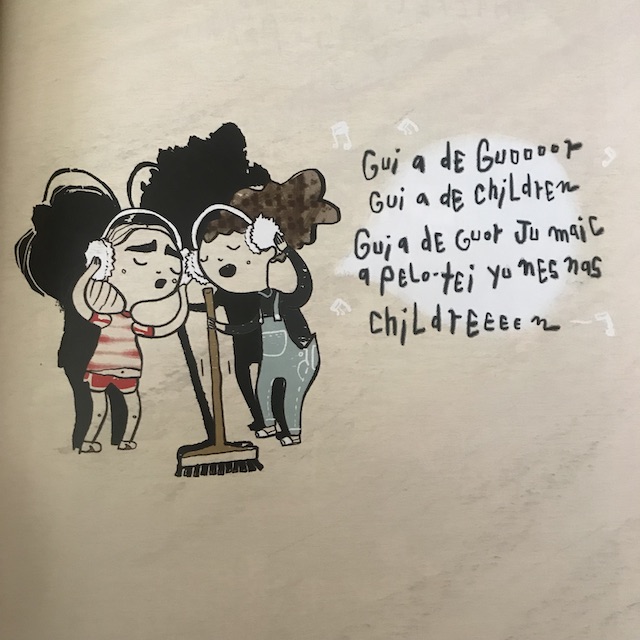 Gui a de Guoooor
Gui a de children
Gui a de Guor Ju maic
a pelo-tei yu nes nas
childreeeen